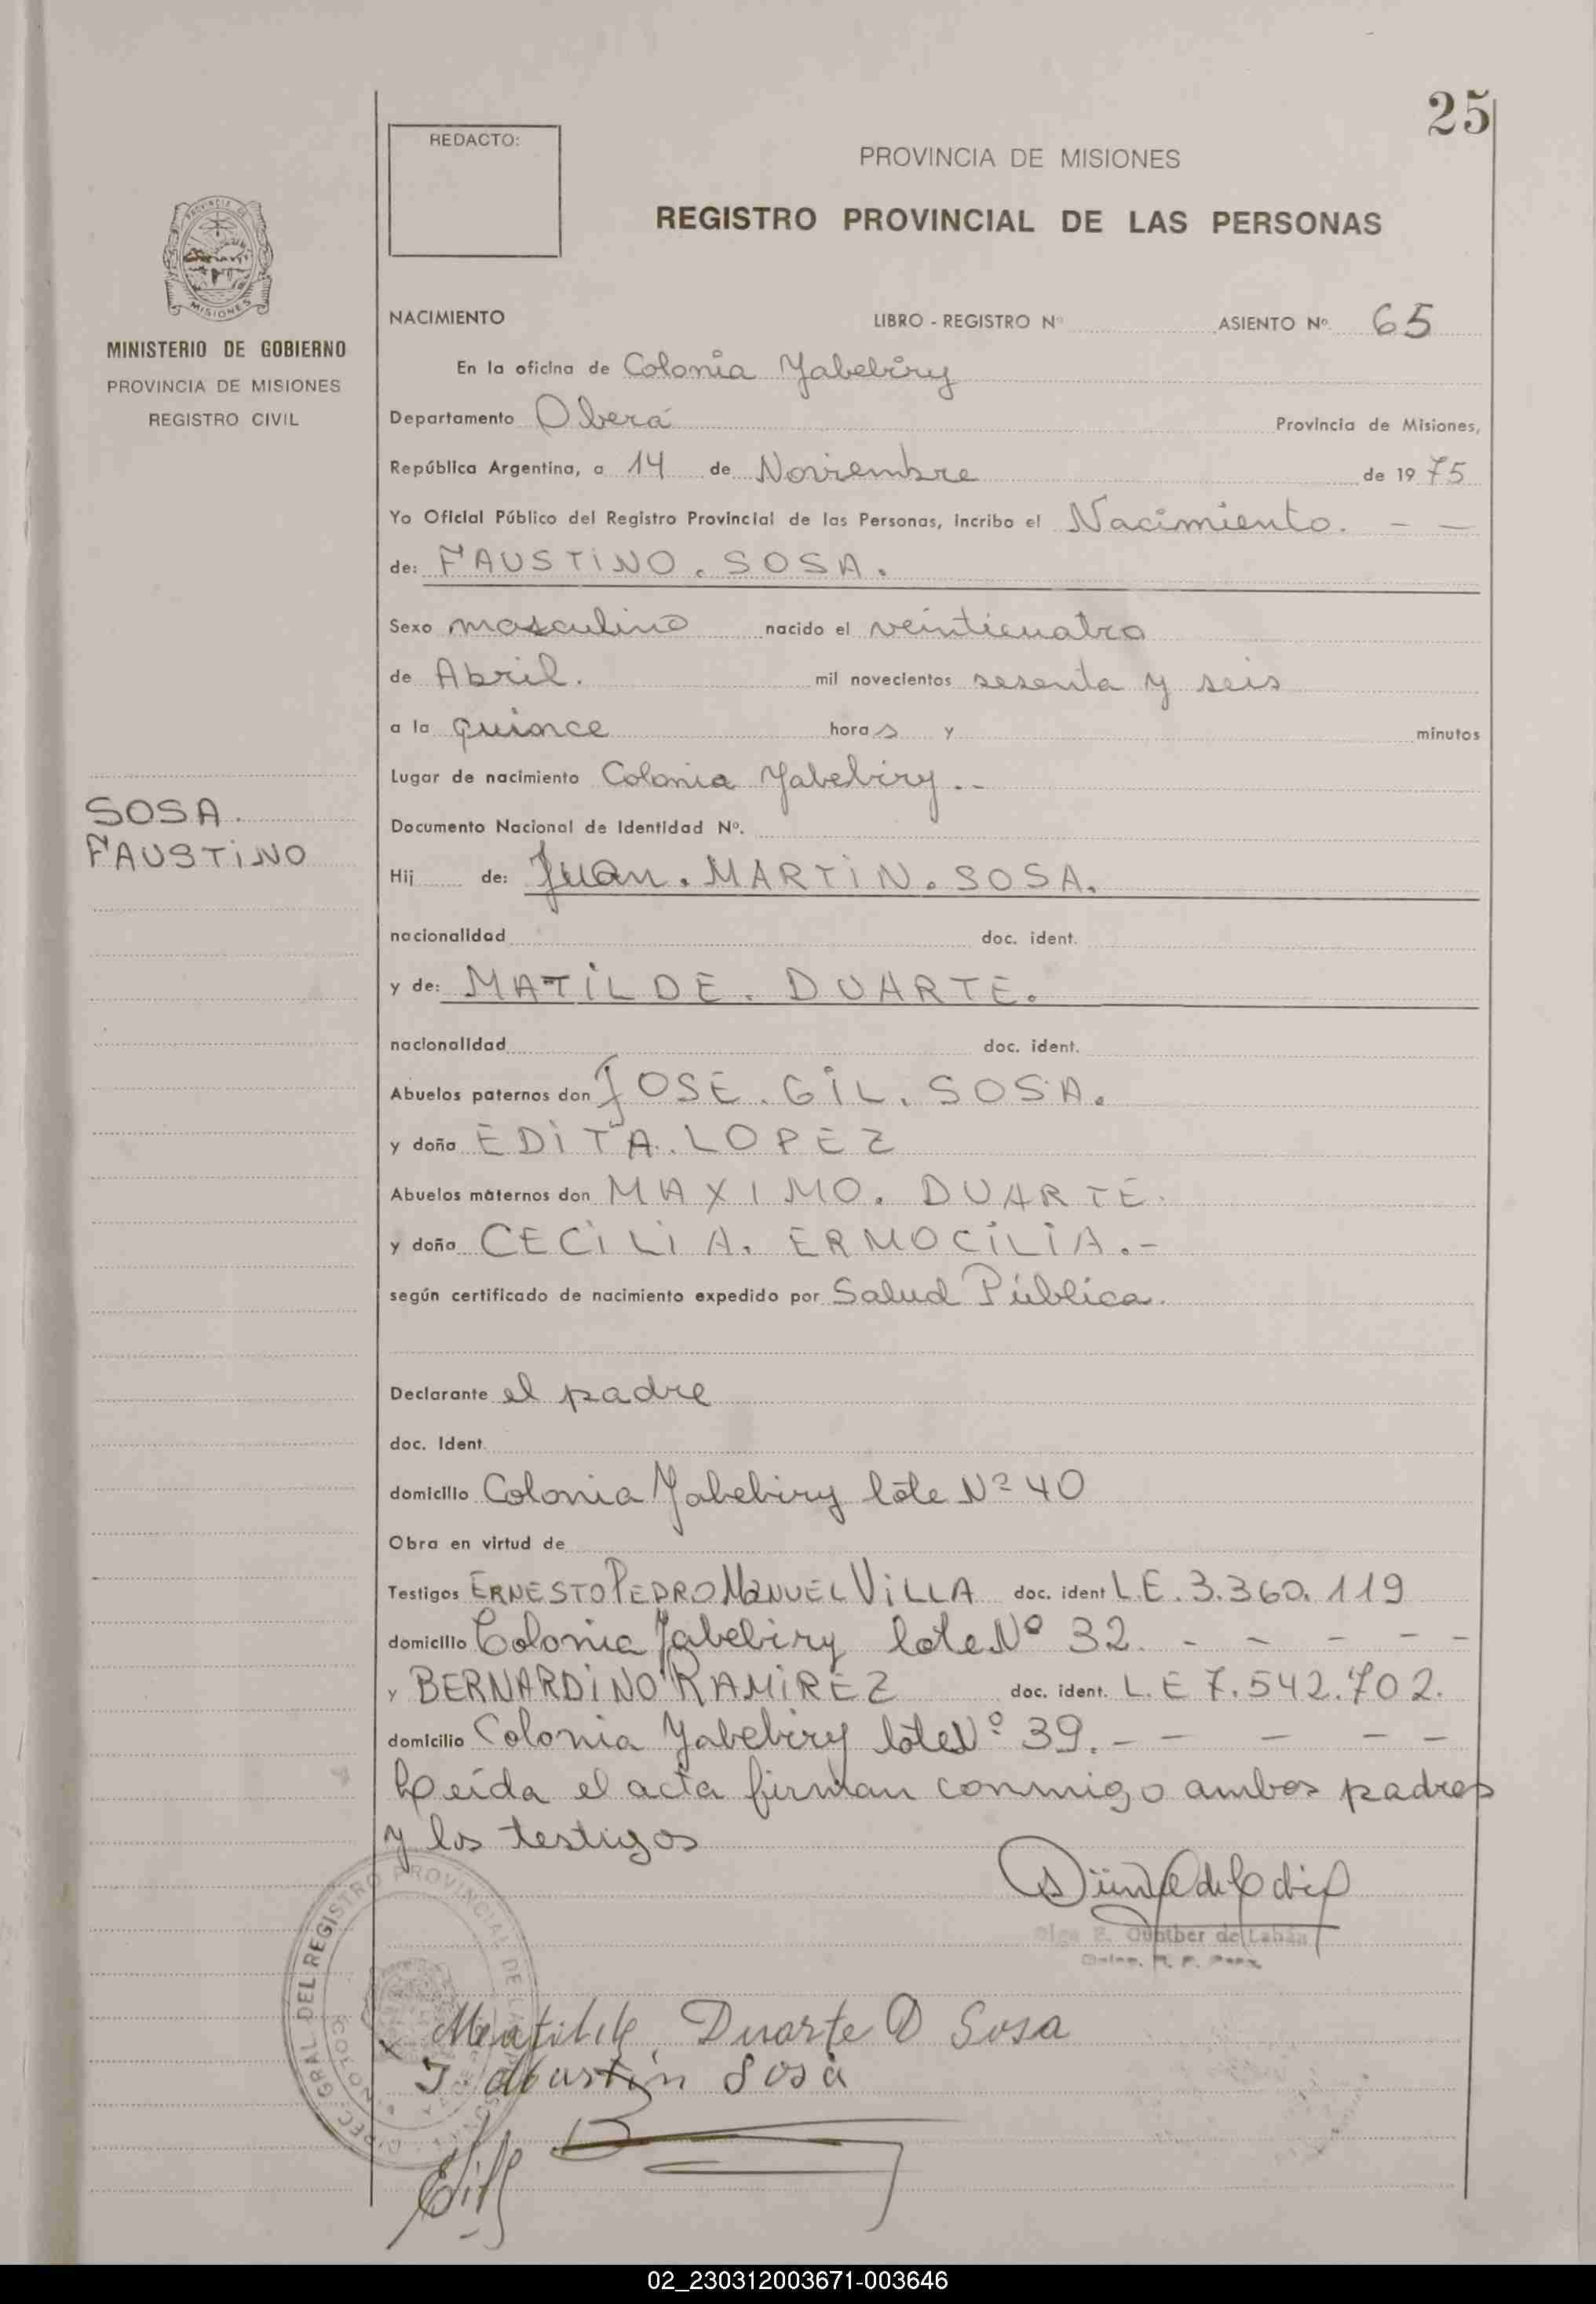 25
REDACTO:
PROVINCIA DE MISIONES
REGISTRO PROVINCIAL DE LAS PERSONAS
MISIONES
MINISTERIO DE GOBIERNO
PROVINCIA DE MISIONES
REGISTRO CIVIL
NACIMIENTO LIBRO - REGISTRO Nº ASIENTO Nº 65
En la oficina de Colonia Yabebiry
Departamento Oberá Provincia de Misiones,
República Argentina, a 14 de Noviembre de 1975
Yo Oficial Público del Registro Provincial de las Personas, incribo el Nacimiento. - -
de: FAUSTINO. SOSA.
Sexo masculino nacido el veinticuatro
de Abril. mil novecientos sesenta y seis
a la quince horas y minutos
Lugar de nacimiento Colonia Yabebiry. --
SOSA.
FAUSTINO
Documento Nacional de Identidad Nº.
Hij de: Juan. MARTIN. SOSA.
nacionalidad doc. ident.
y de: MATILDE. DUARTE.
nacionalidad doc. ident.
Abuelos paternos don JOSE. GIL. SOSA.
y doña EDITA. LOPEZ
Abuelos maternos don MAXIMO. DUARTE.
y doña CECILIA. ERMOCILIA.-
según certificado de nacimiento expedido por Salud Pública.
Declarante el padre
doc. Ident.
domicilio Colonia Yabebiry lote Nº 40
Obra en virtud de
Testigos ERNESTO PEDRO MANUEL VILLA doc. ident L.E. 3.360.119
domicilio Colonia Yabebiry lote Nº 32. - - - - -
y BERNARDINO RAMIREZ doc. ident. L.E 7.542.702.
domicilio Colonia Yabebiry lote Nº 39. - - - - -
Leída el acta firman conmigo ambos padres
y los testigos
Olga E. Günther de Labán
DIREC. GRAL DEL REGISTRO PROVINCIAL DE LAS PERSONAS
Matilde Duarte D Sosa
J Martin Sosa
02_230312003671-003646